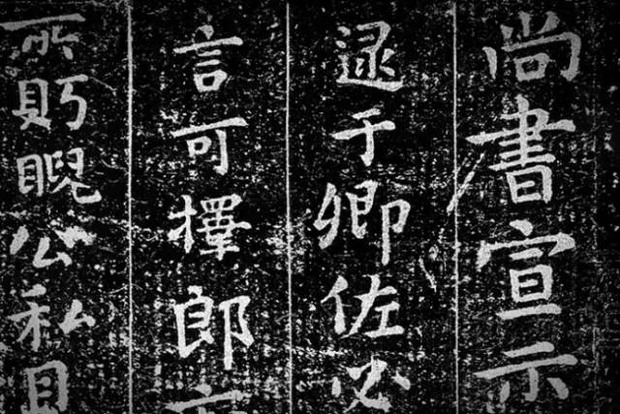 尚書宣示
逯于卿佐必
言可擇郎
所貺睨公私